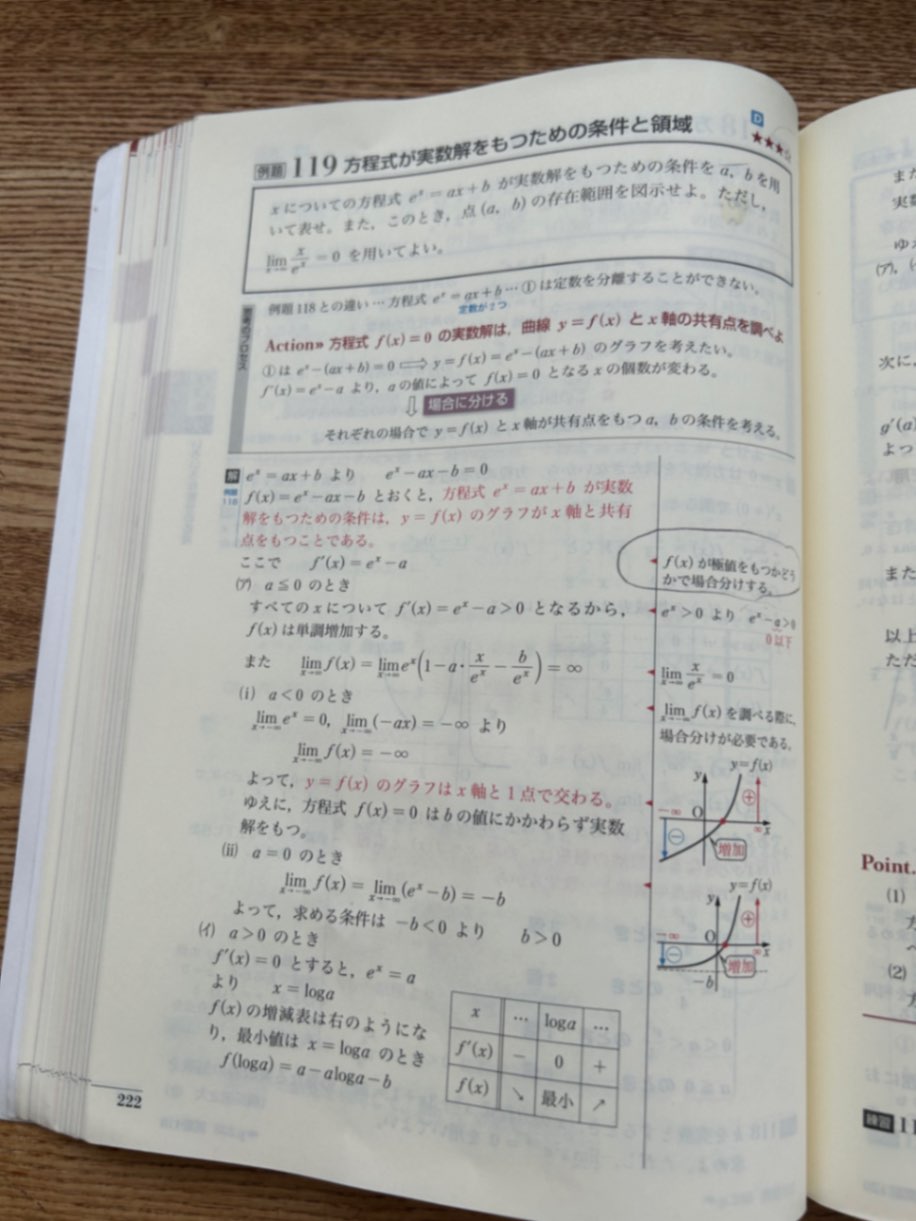 例題 119 方程式が実数解をもつための条件と領域
D
★★★☆
x についての方程式 e^x = ax + b が実数解をもつための条件を a, b を用
いて表せ。また,このとき,点 (a, b) の存在範囲を図示せよ。ただし,
lim_{x→∞} x/e^x = 0 を用いてよい。
思考のプロセス
例題 118 との違い … 方程式 e^x = ax + b … ① は定数を分離することができない。
定数が2つ
Action» 方程式 f(x) = 0 の実数解は,曲線 y = f(x) と x 軸の共有点を調べよ
① は e^x − (ax + b) = 0 ⟺ y = f(x) = e^x − (ax + b) のグラフを考えたい。
f'(x) = e^x − a より,a の値によって f(x) = 0 となる x の個数が変わる。
⇩ 場合に分ける
それぞれの場合で y = f(x) と x 軸が共有点をもつ a, b の条件を考える。
解 e^x = ax + b より e^x − ax − b = 0
例題 118
f(x) = e^x − ax − b とおくと,方程式 e^x = ax + b が実数
解をもつための条件は,y = f(x) のグラフが x 軸と共有
点をもつことである。
ここで f'(x) = e^x − a
(ア) a ≦ 0 のとき
すべての x について f'(x) = e^x − a > 0 となるから,
f(x) は単調増加する。
また lim_{x→∞} f(x) = lim_{x→∞} e^x(1 − a・x/e^x − b/e^x) = ∞
(i) a < 0 のとき
lim_{x→−∞} e^x = 0, lim_{x→−∞} (−ax) = −∞ より
lim_{x→−∞} f(x) = −∞
よって,y = f(x) のグラフは x 軸と 1 点で交わる。
ゆえに,方程式 f(x) = 0 は b の値にかかわらず実数
解をもつ。
(ii) a = 0 のとき
lim_{x→−∞} f(x) = lim_{x→−∞} (e^x − b) = −b
よって,求める条件は −b < 0 より b > 0
(イ) a > 0 のとき
f'(x) = 0 とすると,e^x = a
より x = log a
f(x) の増減表は右のようにな
り,最小値は x = log a のとき
f(log a) = a − a log a − b
x … log a …
f'(x) − 0 +
f(x) ↘ 最小 ↗
f(x) が極値をもつかどう
かで場合分けする。
e^x > 0 より e^x − a > 0
0 以下
lim_{x→∞} x/e^x = 0
lim_{x→−∞} f(x) を調べる際に,
場合分けが必要である。
y y = f(x)
⊕
−∞ O ∞ x
⊖
増加
y y = f(x)
⊕
−∞ O ∞ x
⊖
増加
−b
222
また
実数
ゆえ
(ア), (
次に,
g'(a)
よっ
また
以上
ただ
Point.
(1)
(2)
練習 11